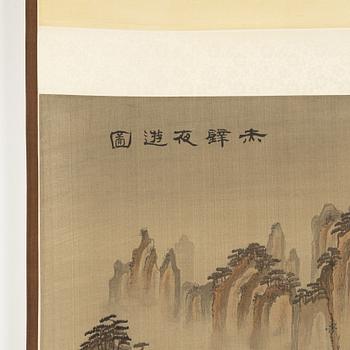 赤壁夜遊圖